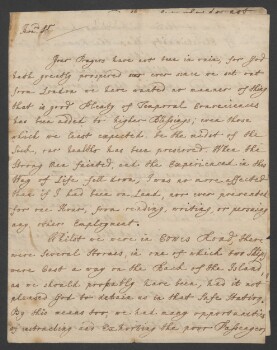 Hon.d Sr
Your Prayers have not been in vain, for God
hath greatly prospered us ever since we set out
from London we have wanted no manner of thing
that is good Plenty of Temporal Conveniences
has been added to higher Blessings, even those
which we least expected. In the midst of the
Sick, our healths has been preserved. When the
Strong Men fainted, and the Experienced in this
Way of Life fell down, I was no more affected
than if I had been on Land, nor ever prevented
for one Hour, from reading, writing, or pursuing
any other Employment.
Whilst we were in Cowes Road, there
were Several Storms, in one of which two Ships
were Cast a way on the Back of the Island,
as we should probably have been, had it not
pleased God to detain us in that Safe Station.
By this means too, we had many opportunities
of instructing and Exhorting the poor Passengers,